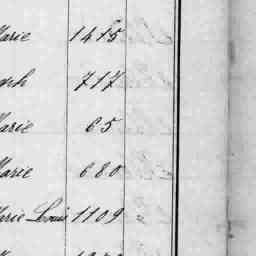 Marie 1415
ph 717
Marie 65
Marie 680
Marie Louis 1109